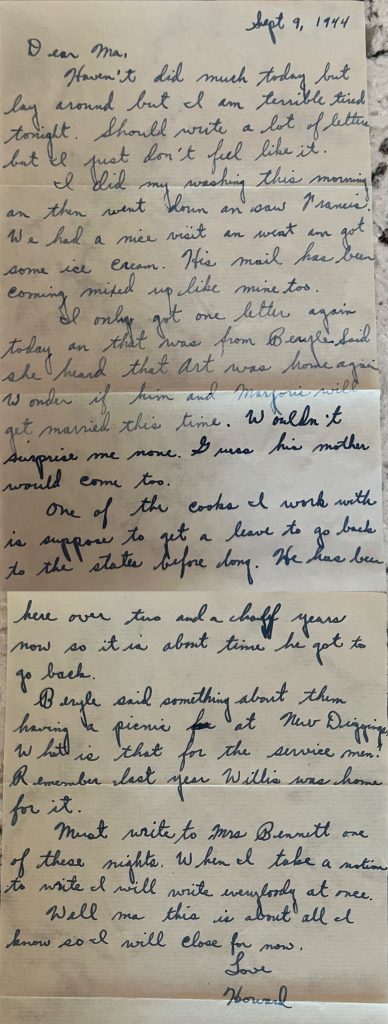 Sept 9, 1944
Dear Ma,
Haven't did much today but
lay around but I am terrible tired
tonight. Should write a lot of letters
but I just don't feel like it.
I did my washing this morning
an then went down an saw Francis.
We had a nice visit an went an got
some ice cream. His mail has been
coming mixed up like mine too.
I only got one letter again
today an that was from Beryle. Said
she heard that Art was home again
Wonder if him and Marjorie will
get married this time. Wouldn't
surprise me none. Guess his mother
would come too.
One of the cooks I work with
is suppose to get a leave to go back
to the states before long. He has been
here over two and a half years
now so it is about time he got to
go back.
Beryle said something about them
having a picnic at New Diggings.
What is that for the service men?
Remember last year Willis was home
for it.
Must write to Mrs Bennett one
of these nights. When I take a notion
to write I will write everybody at once.
Well ma this is about all I
know so I will close for now.
Love
Howard